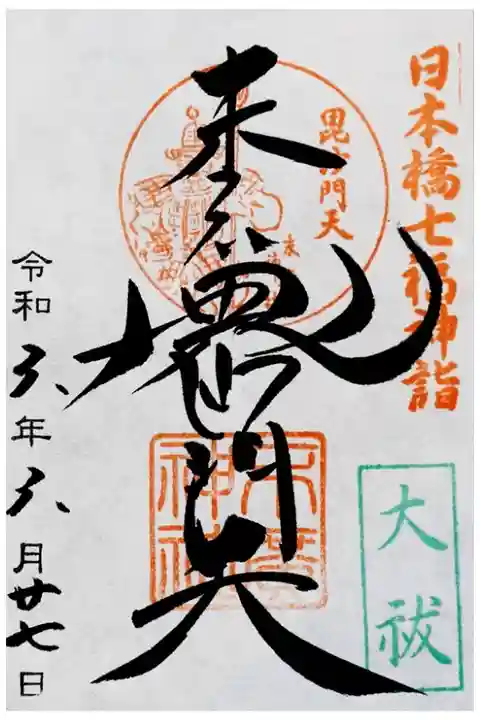 日本橋七福神詣
大祓
毘沙門天
末廣
毘沙門天
末廣
神社
令和六年六月廿七日